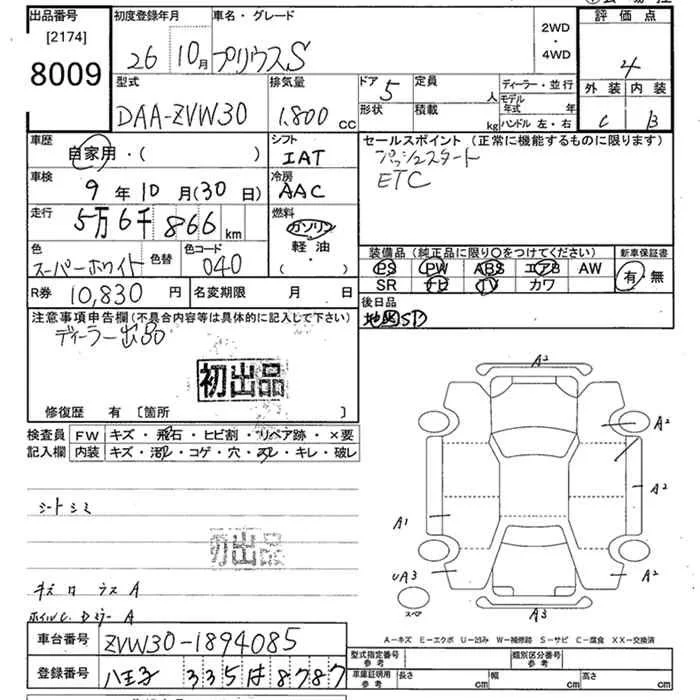 出品番号
[2174]
8009
初度登録年月
26 10月
車名・グレード
プリウスS
2WD
・
4WD
評価点
4
外装 内装
C B
型式
DAA-ZVW30
排気量
1,800 cc
ドア 5
形状
定員 人
積載 kg
ディーラー・並行
モデル年式 年
ハンドル 左・右
車歴
自家用・( )
シフト
IAT
セールスポイント (正常に機能するものに限ります)
プッシュスタート
ETC
車検
9年10月(30日)
冷房
AAC
走行
5万6千866km
燃料
ガソリン
軽油・
( )
色
スーパーホワイト
色替
色コード
040
装備品 (純正品に限り○をつけてください)
PS PW ABS エアB AW
SR ナビ TV カワ
新車保証書
有 無
R券 10,830円
名変期限 月 日
後日品
地図SD
注意事項申告欄(不具合内容等は具体的に記入して下さい)
ディーラー出品
初出品
修復歴 有 [箇所 ]
検査員
記入欄
FW キズ・飛石・ヒビ割・リペア跡・×要
内装 キズ・汚レ・コゲ・穴・スレ・キレ・破レ
シートシミ
初出品
A2
A2
A2
A1
A2
UA3
スペア
A3
A-キズ E-エクボ U-凹み W-補修跡 S-サビ C-腐食 XX-交換済
車台番号 ZVW30-1894085
登録番号 八王子 335 は 8787
型式指定番号
参考
類別区分番号
参考
車庫証明用
参考
長さ cm
幅 cm
高さ cm